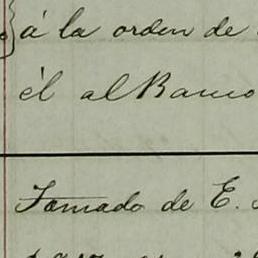 á la orden de
él al Banco
Tomado de E.